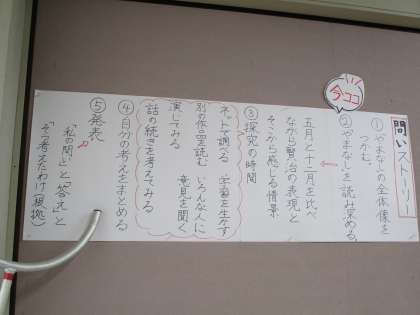 今ココ
問いストーリー
①やまなしの全体像を
つかむ。
②やまなしを読み深める。
五月と十二月を比べ
ながら賢治の表現と
そこから感じる情景
③探究の時間
ネットで調べる 学習を生かす
別の作品を読む いろんな人に
演じてみる 意見を聞く
話の続きを考えてみる
④自分の考えをまとめる
⑤発表
「私の問い」と「答え」と
「そう考えたわけ(根拠)